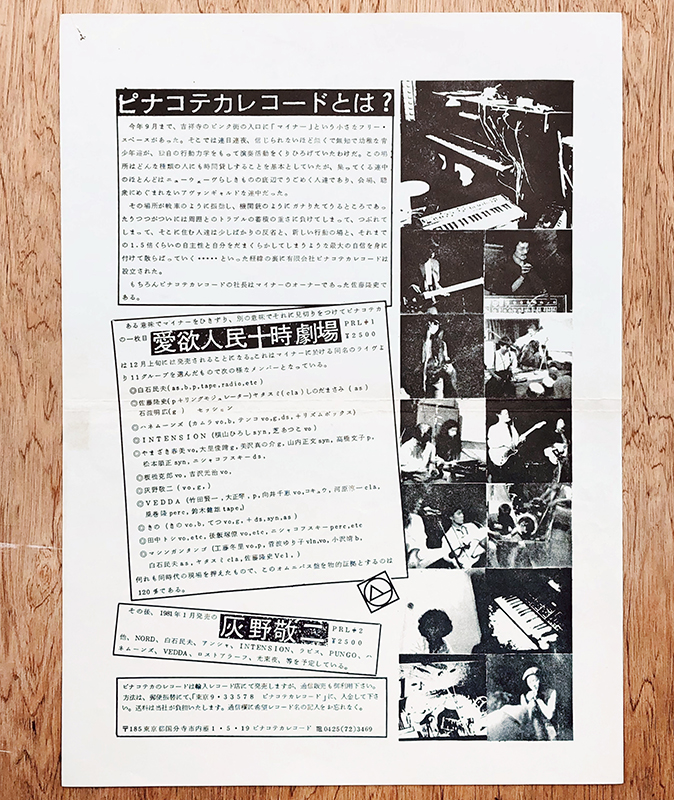 ピナコテカレコードとは？
今年9月まで、吉祥寺のピンク街の入口に「マイナー」という小さなフリー・
スペースがあった。そこでは連日連夜、信じられないほど無くて無知で幼稚な青
少年達が、独自の行動力学をもって演奏活動をくりひろげていたわけだ。この場
所はどんな種類の人にも時間貸しすることを基本としていたが、集ってくる連中
のほとんどはニューウェーヴらしきものの底辺でうごめく人達であり、会場、聴
衆にめぐまれないアヴァンギャルドな連中だった。
その場所が戦車のように振動し、機関銃のようにガナりたてうるところであっ
たりつつがついには周囲とのトラブルの蓄積の重さに負けてしまって、つぶれて
しまって、そこに住む人達は少しばかりの反省と、新しい行動の場と、それまで
の1.5倍くらいの自主性と自分をだまくらかしてしまうような最大の自信を身に
付けて散らばっていく・・・・・といった経緯の裏に有限会社ピナコテカレコードは
設立された。
もちろんピナコテカレコードの社長はマイナーのオーナーであった佐藤隆史で
ある。
ある意味でマイナーをひきずり、別の意味でそれに見切りをつけてピナコテカ
の一枚目 愛欲人民十時劇場 PRL#1 ¥2500
は12月上旬には発売されることになる。これはマイナーに於ける同名のライヴよ
り11グループを選んだもので次の様なメンバーとなっている。
◎白石民夫(as,b,p,tape,radio,etc)
◎佐藤隆史(p+リングモジュレーター)ヤタスミ(cla)しのだまさみ(as)
石渡明広(g) セッション
◎ハネムーンズ(カムラvo,b,テンコvo,g,ds,+リズムボックス)
◎INTENSION(横山ひろしsyn,芝あつこvo)
◎やまざき春美vo,大里俊晴g,美沢真の介g,山内正文syn,高橋文子p,
松本順正syn,ニシャコフスキーds,
◎板橋克郎vo,吉沢元治vo,
◎灰野敬二(vo,g,)
◎VEDDA(竹田賢一,大正琴,p,向井千恵vo,コキュウ,河原淳一cla,
風巻隆perc,鈴木健雄tape,)
◎きの(きのvo,b,てつvo,g,+ds,syn,as)
◎田中トシvo,etc,後飯塚僚vo,etc,ニシャコフスキーperc,etc
◎マシンガンタンゴ(工藤冬里vo,p,菅波ゆり子vln,vo,小沢靖b,
白石民夫as,ヤタスミcla,佐藤隆史Vcl,)
何れも同時代の現場を押えたもので、このオムニバス盤を物的証拠とするのは
120%である。
その後、1981年1月発売の 灰野敬二 PRL#2 ¥2500
他、NORD、白石民夫、アンジャ、INTENSION、ラピス、PUNGO、ハ
ネムーンズ、VEDDA、ロストアラーフ、光束夜、等を予定している。
ピナコテカのレコードは輸入レコード店にて発売しますが、通信販売も御利用下さい。
方法は、郵便振替にて、「東京9・33578 ピナコテカレコード」に、入金して下さ
い。送料は当社が負担いたします。通信欄に希望レコード名の記入をお忘れなく。
〒185東京都国分寺市内藤1・5・19ピナコテカレコード ☎0425(72)3469